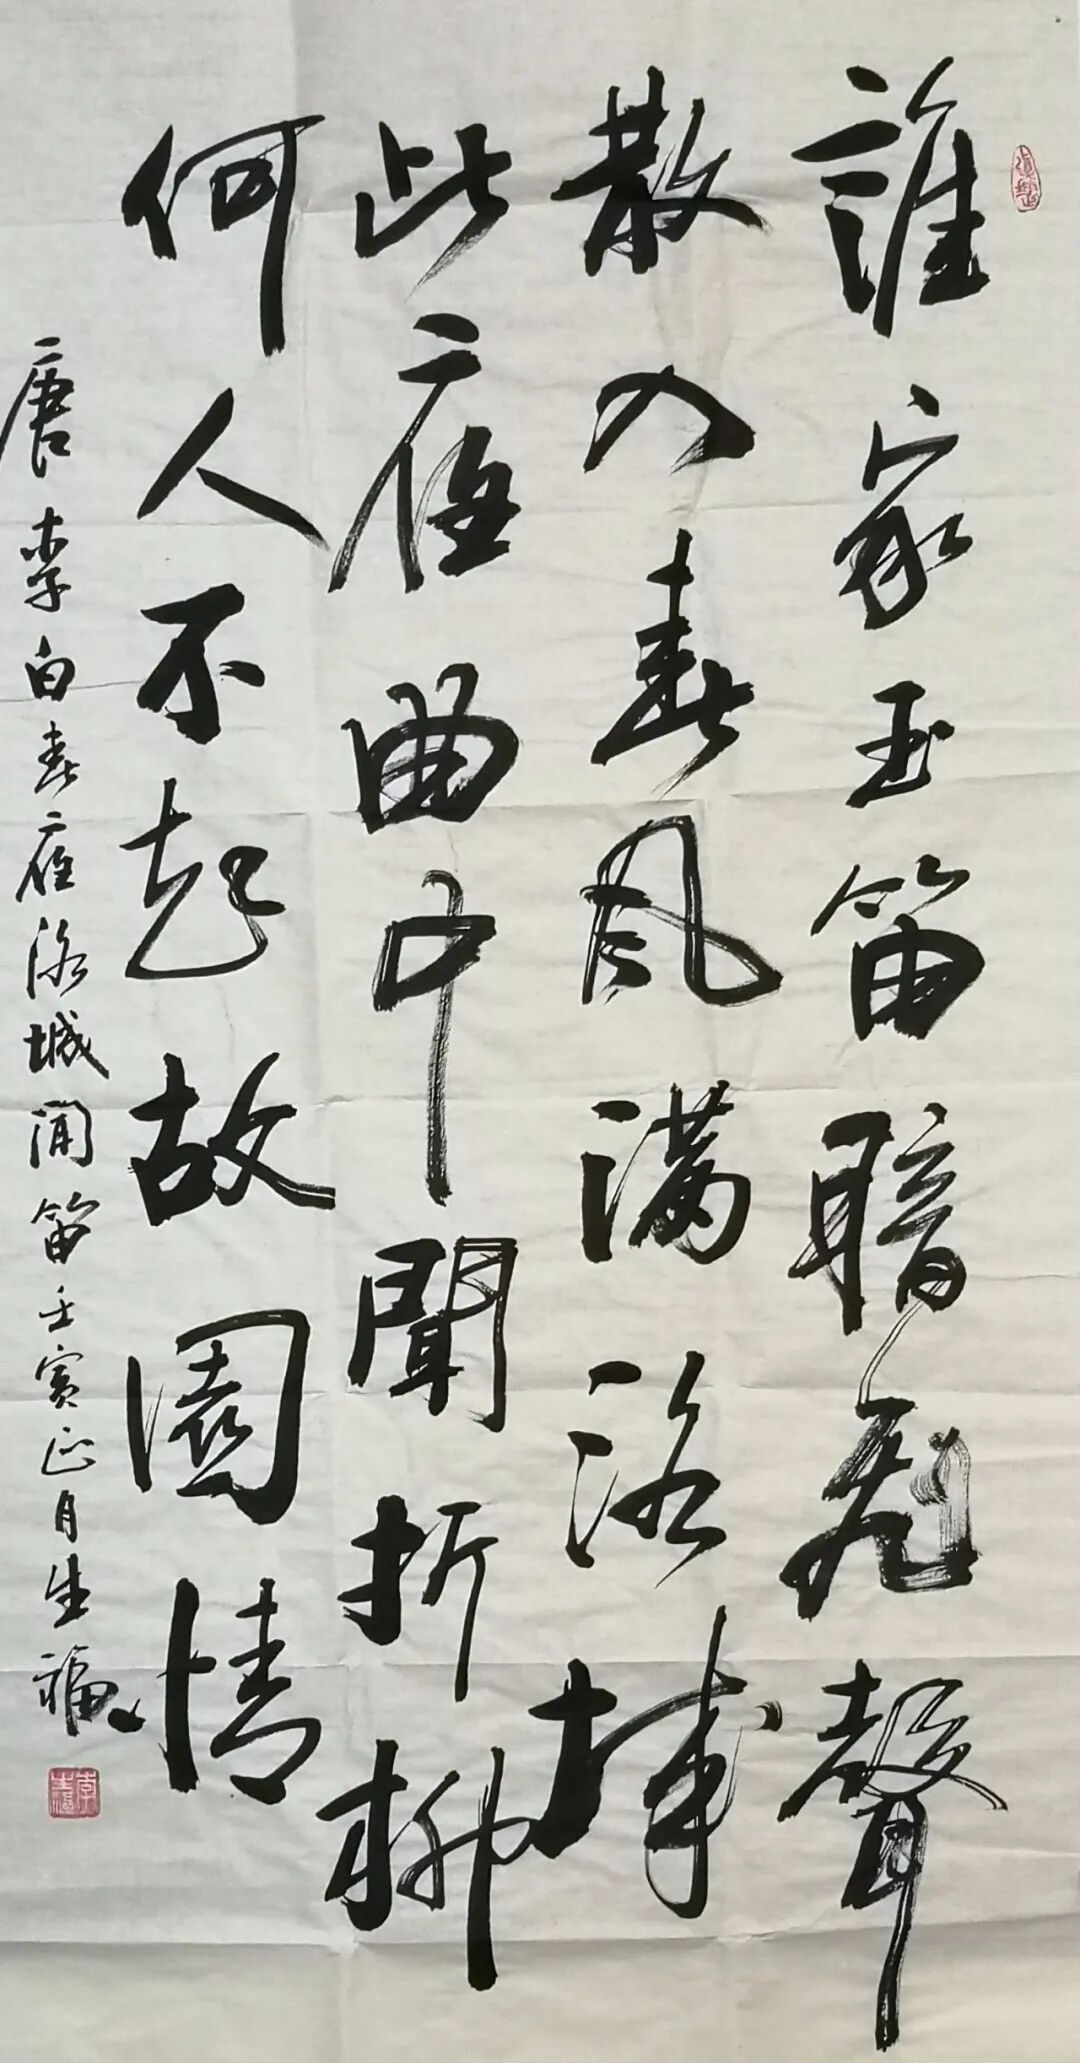 誰家玉笛暗飛聲
散入春風满洛城
此夜曲中聞折柳
何人不起故園情
唐李白春夜洛城闻笛壬寅正月生福
李生福